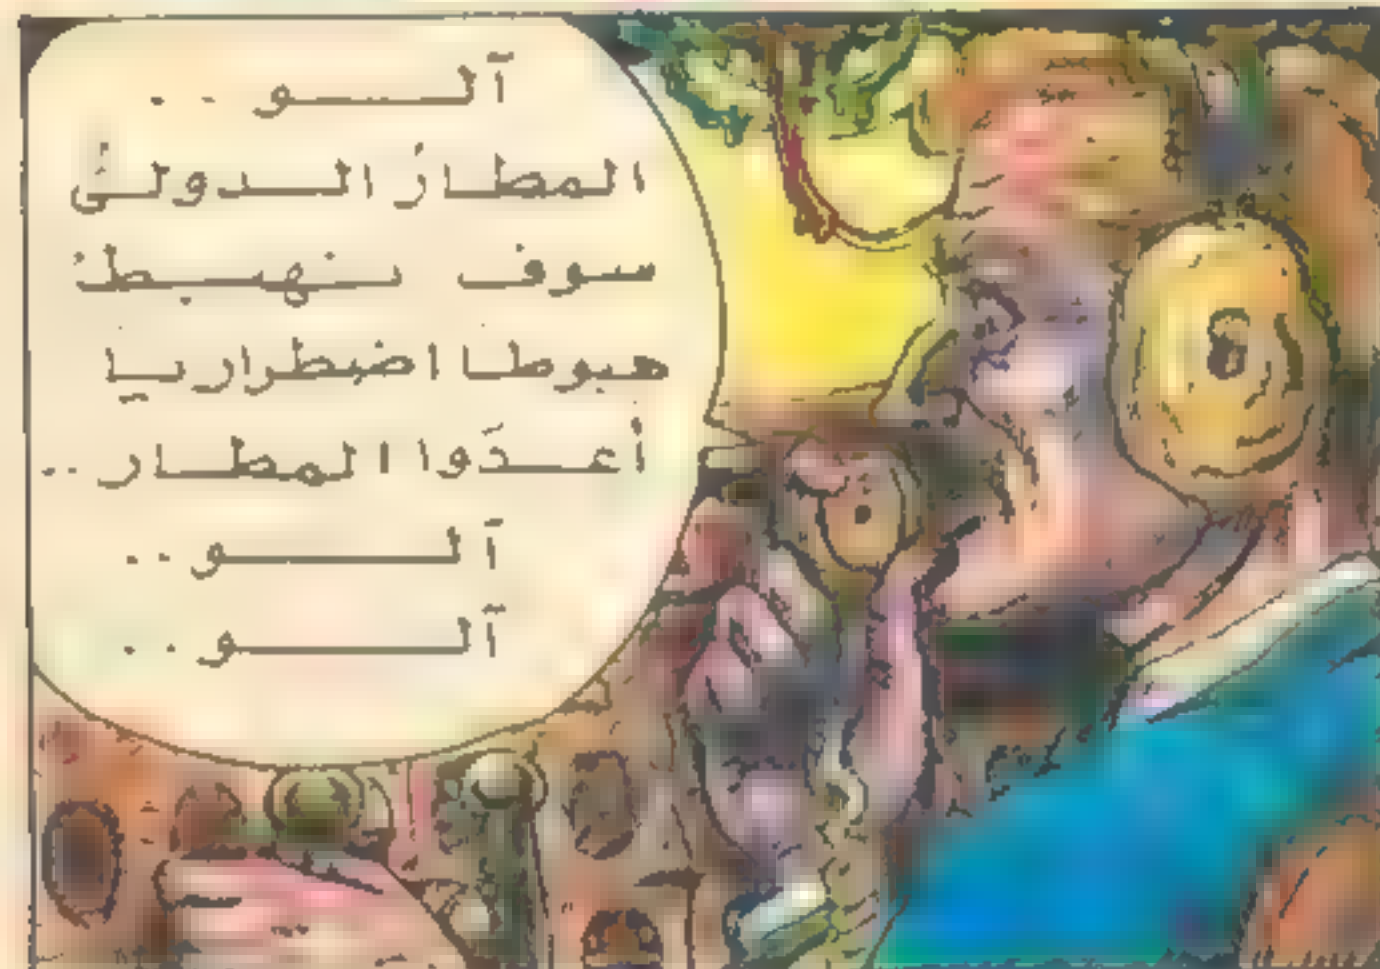 آلو ..
المطارُ الدولىُّ
سوف نهبطُ
هبوطا اضطراريا
أعدَوا المطار ..
آلو ..
آلو ..